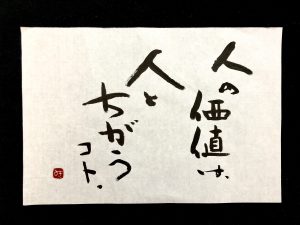 人の価値は、
人と
ちがう
コト、